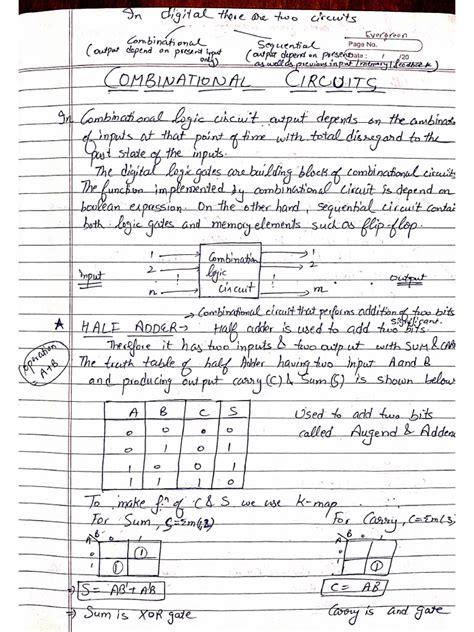 In digital there are two circuits
Evergreen
Page No.
Date: / /20
Combinational
(output depend on present input only)
Sequential
(output depend on present as well as previous input / memory / feedback)
COMBINATIONAL CIRCUITS
In Combinational logic circuit output depends on the
of inputs at that point of time with total disregard to the
past state of the inputs.
The digital logic gates are building block of combinational circuits
The function implemented by combinational circuit is depend on
boolean expression. On the other hand, sequential circuit contai
both logic gates and memory elements such as flip-flop.
Input
1
2
n
Combination
logic
circuit
1
2
m
Output
→ Combinational circuit that performs addition of two bits
HALF ADDER → Half adder is used to add two significant bits.
Therefore it has two inputs & two output with SUM &
operation
A+B
The truth table of half Adder having two input A and B
and producing output carry(C) & Sum(S) is shown below
A B C S
0 0 0 0
0 1 0 1
1 0 0 1
1 1 1 0
Used to add two bits
called Augend & Adden
To make fⁿ of C & S we use k-map
For Sum,
For Carry,
A B 0 1
0 1
1 1
A B 0 1
0
1 1
→ S = AB' + A'B
C = AB
→ Sum is XOR gate
Carry is and gate